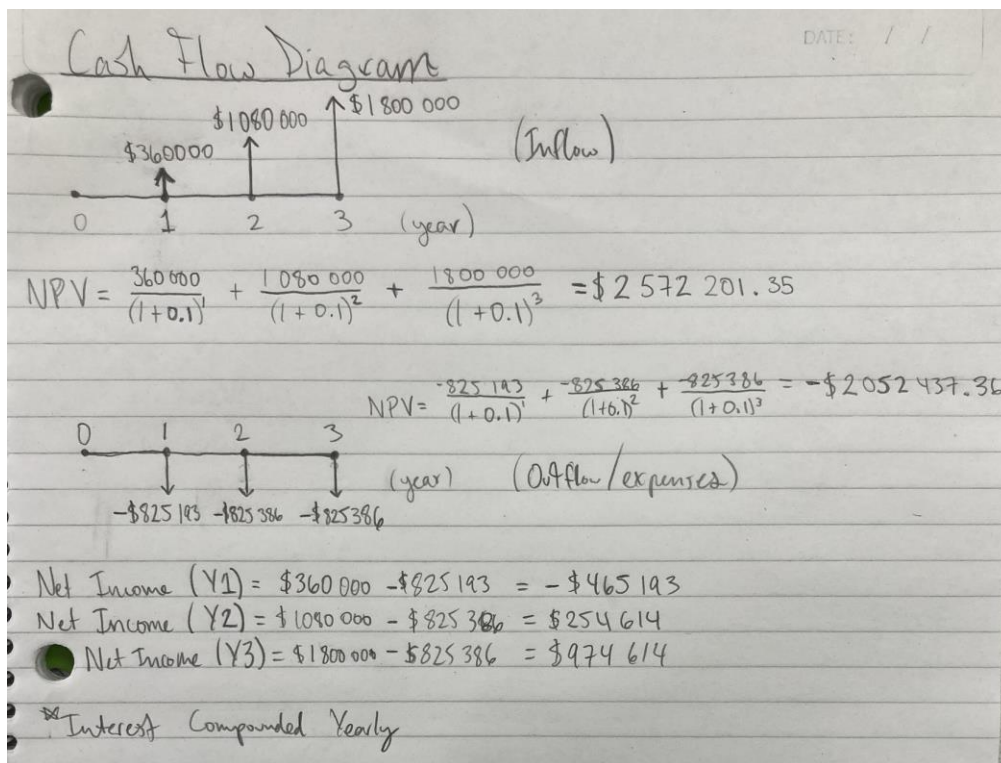 DATE: / /
Cash Flow Diagram
$1800 000
$1080 000
$360000
(Inflow)
0 1 2 3 (year)
NPV = 360 000/(1+0.1)^1 + 1 080 000/(1+0.1)^2 + 1800 000/(1+0.1)^3 = $2 572 201.35
NPV = -825 193/(1+0.1)^1 + -825 386/(1+0.1)^2 + -825386/(1+0.1)^3 = -$2052 437.36
0 1 2 3
(year) (Outflow/expenses)
-$825 193 -$825 386 -$825386
Net Income (Y1) = $360 000 -$825 193 = -$465 193
Net Income (Y2) = $1080 000 - $825 386 = $254 614
Net Income (Y3) = $1800 000 - $825 386 = $974 614
*Interest Compounded Yearly